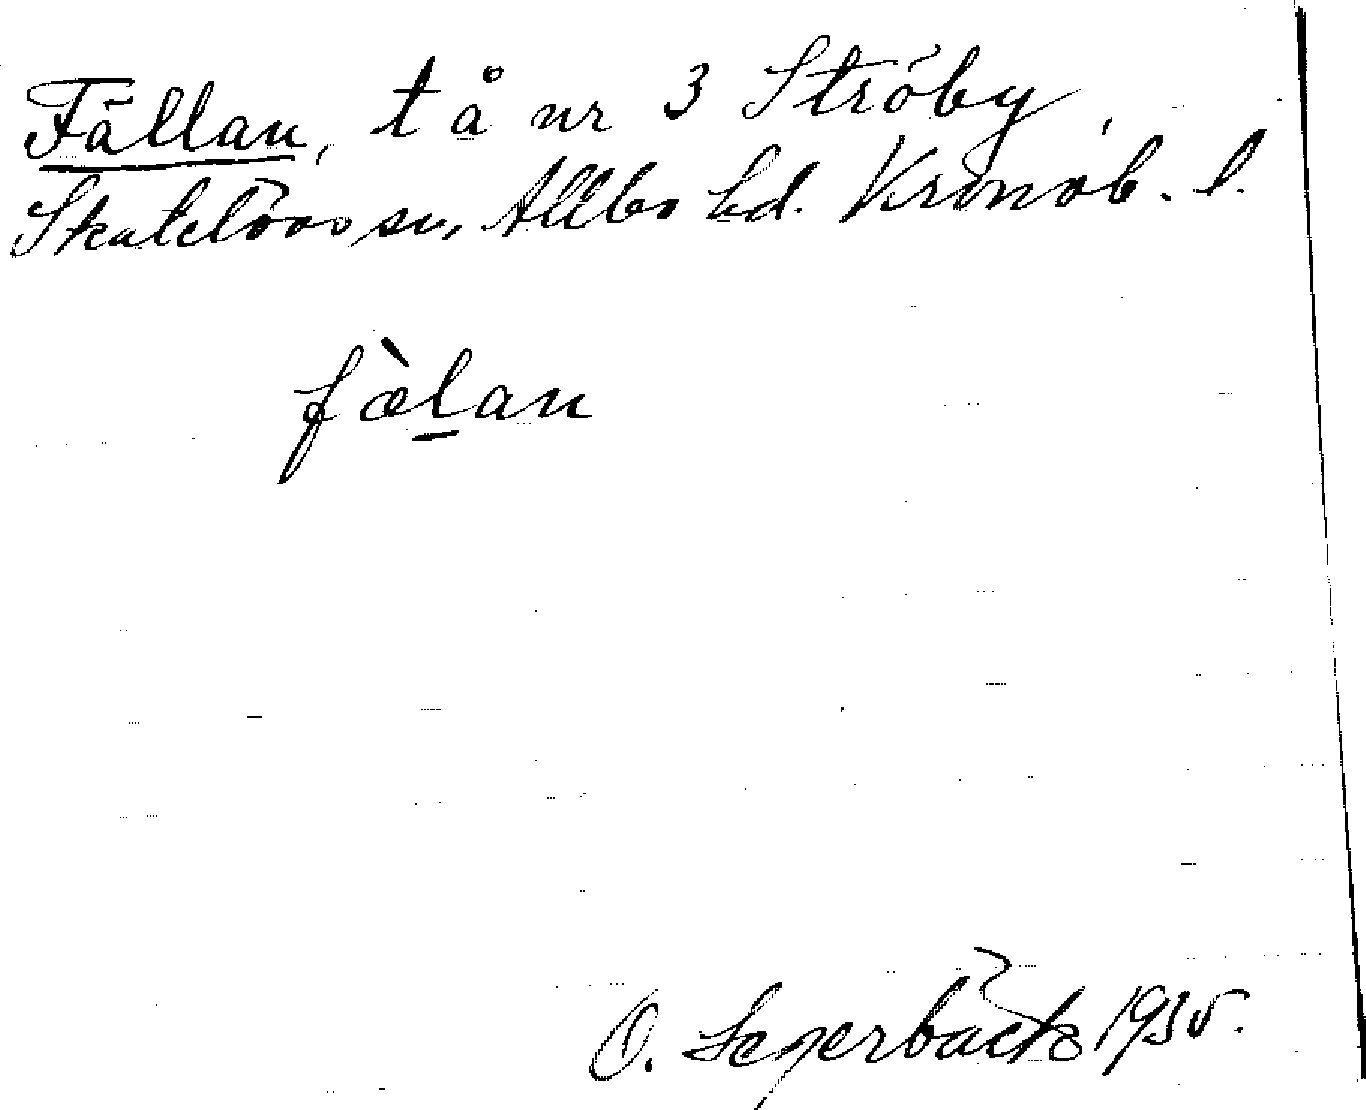 Fällan, tå nr 3 Ströby,
Skatelövs sn, Allbo hd. Kronob. l.
fæ̀lan
O. Segerbäck 1935.